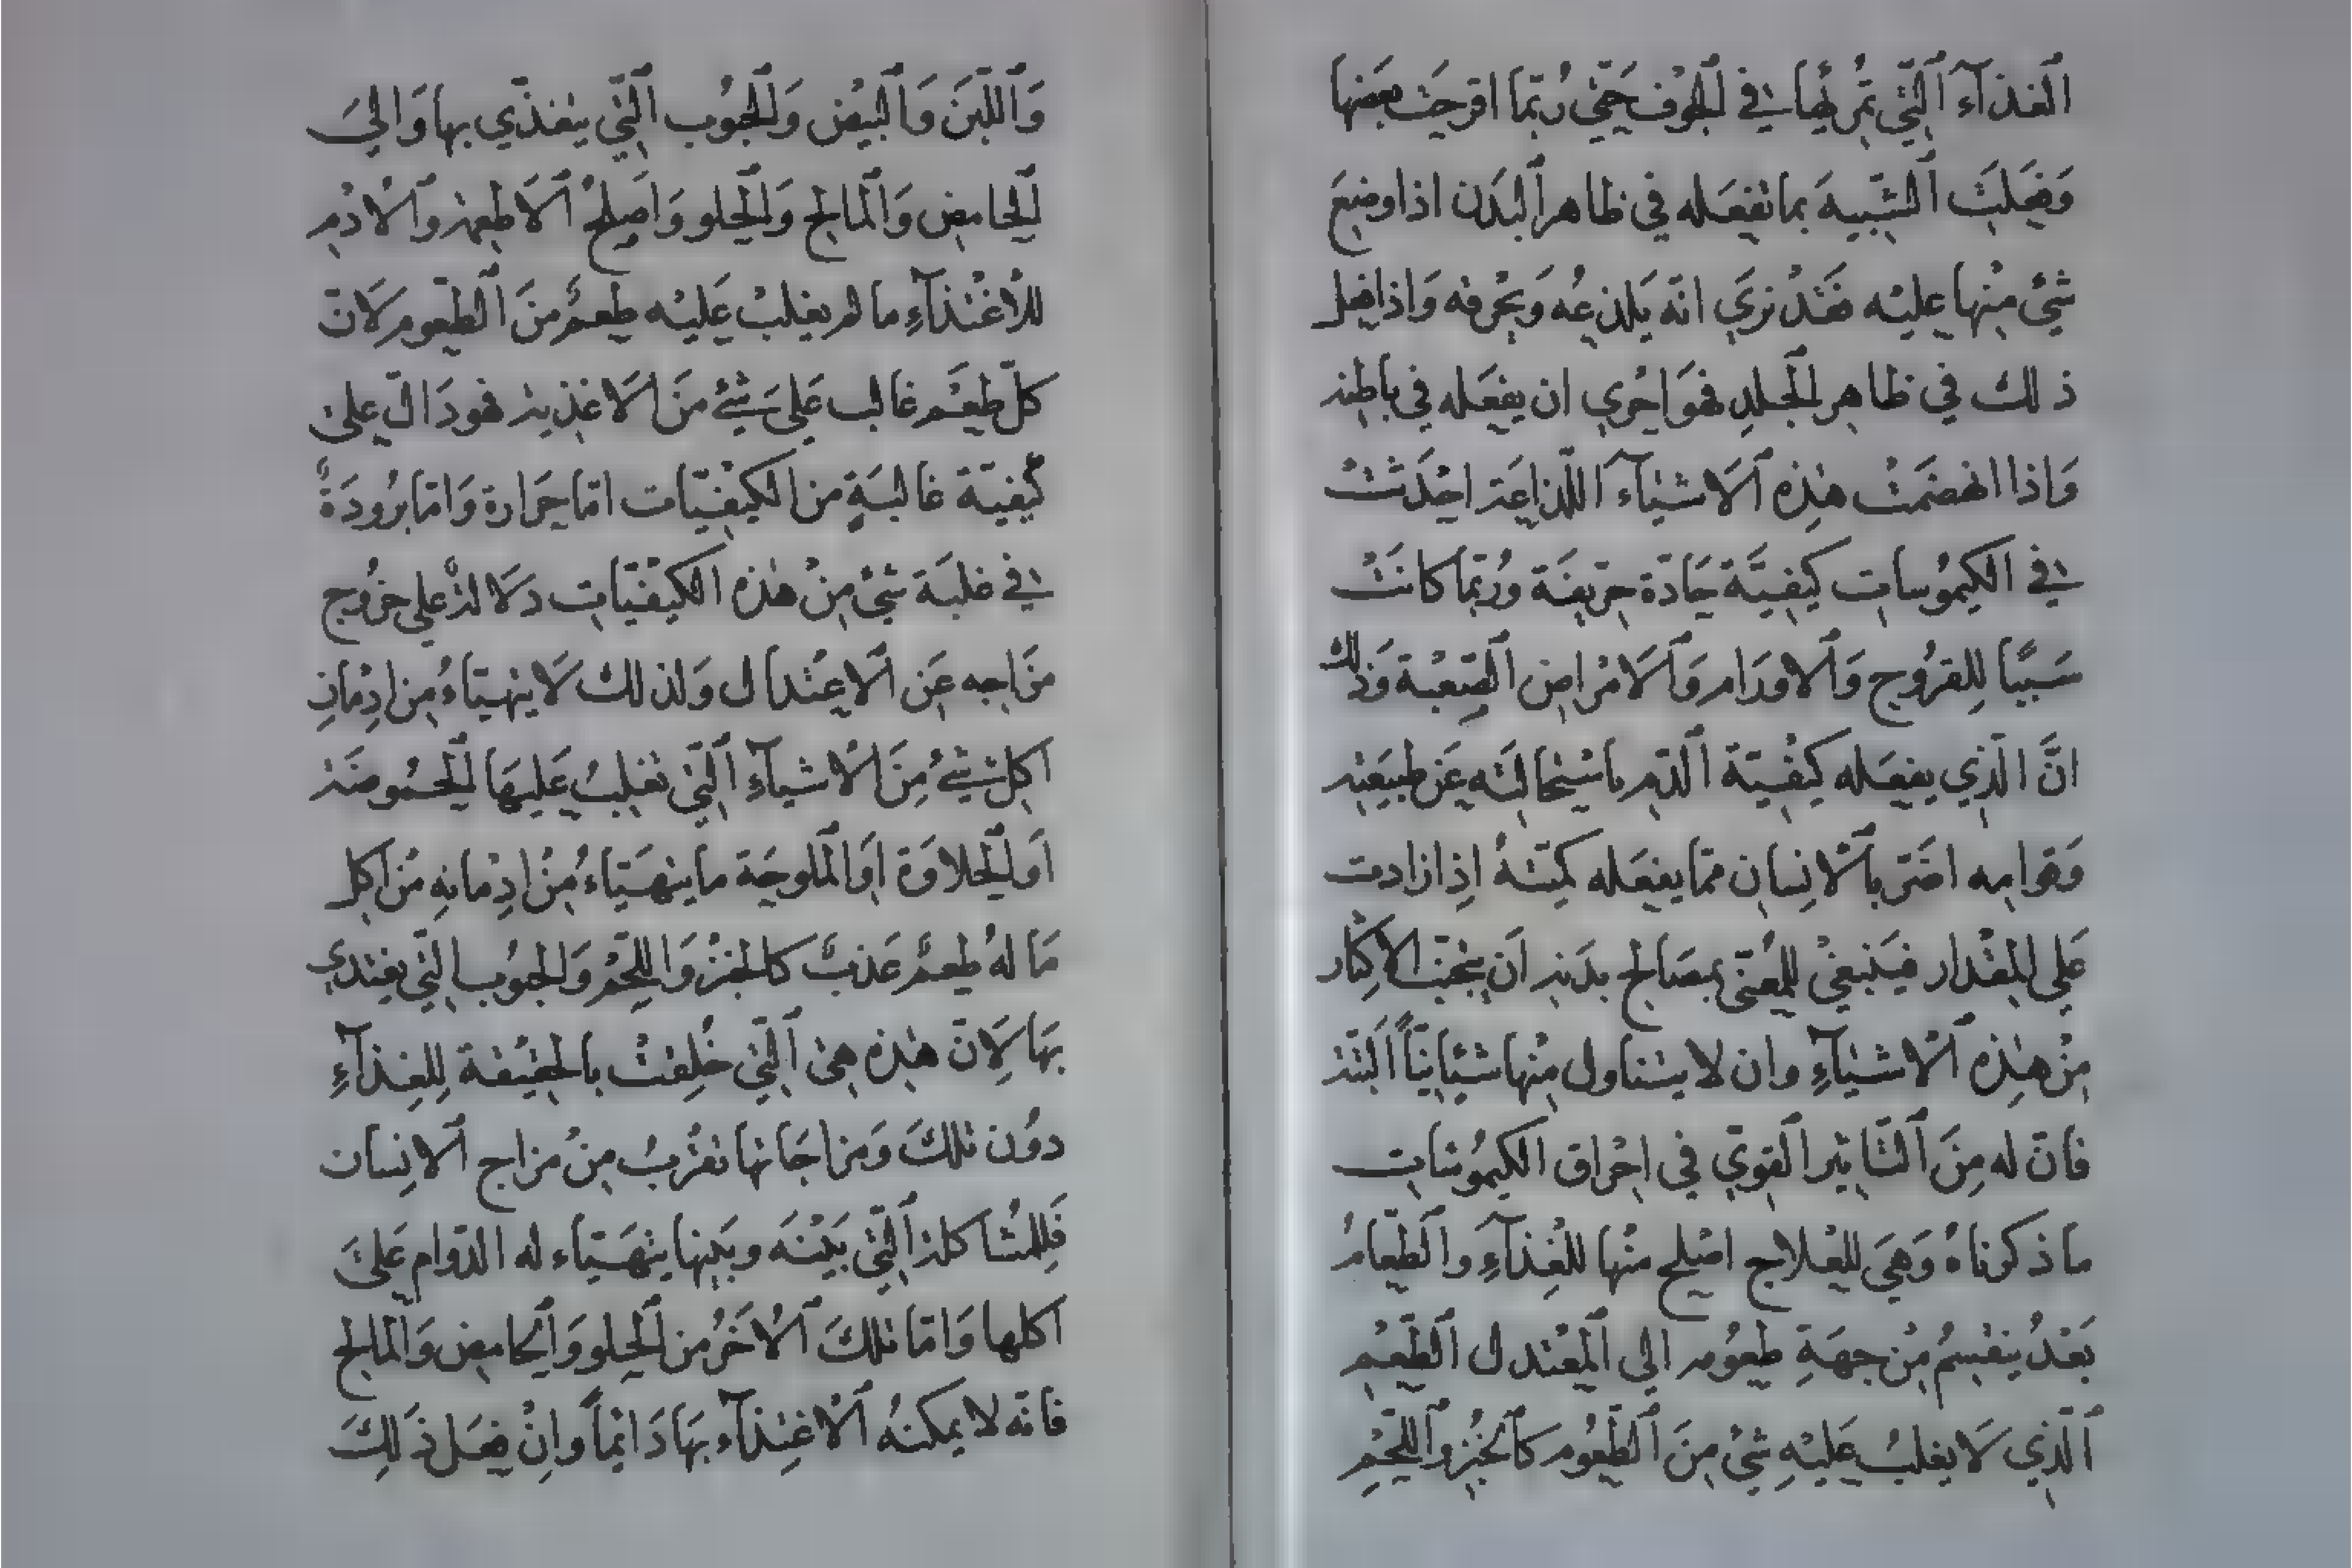 الغذآء التي تمر بها في الجوف حتى ربما اقرحت بعضها
وفعلت الشبيه بما تفعله في ظاهر البدن اذا وضع
شئ منها عليه فقد نرى انه يلذعه ويحرقه واذا فعل
ذلك في ظاهر الجلد فهو احرى ان يفعله في باطنه
واذا انهضمت هذه الاشيآء اللذاعة احدثت
في الكيموسات كيفية حادة حريفة وربما كانت
سببا للقروح والاورام والامراض الصعبة وذلك
انّ الذي يفعله كيفية الدم باستحالته عن طبيعته
وقوامه اضرّ بالانسان مما يفعله كميته اذا زادت
على المقدار فينبغي للمعني بمصالح بدنه ان يجتنب الاكثار
من هذه الاشيآء وان لا يتناول منها شيئا نيّاً البتة
فانّ له من التاثير القوي في احراق الكيموسات
ما ذكرناه وهي للعلاج اصلح منها للغذآء والطعام
بعد ينقسم من جهة طعومه الى المعتدل الطعم
الذي لا يغلب عليه شئ من الطعوم كالخبز واللحم
واللبن والبيض والحبوب التي يتغذّي بها والى
الحامض والمالح والحلو واصلح الاطعمة والادم
للاغتذآء ما لم يغلب عليه طعم من الطعوم لانّ
كلّ طعم غالب على شئ من الاغذية فهو دالّ على
كيفية غالبة من الكيفيّات اما حرارة واما برودة
في غلبة شئ من هذه الكيفيّات دلالة على خروج
مزاجه عن الاعتدال ولذلك لا يتهيّاء من ادمان
اكل شئ من الاشيآء التي تغلب عليها الحموضة
او الحلاوة او الملوحة ما يتهيّاء من ادمانه من اكل
ما له طعم عذب كالخبز واللحم والحبوب التي يغتدي
بها لانّ هذه هي التي خلقت بالحقيقة للغذآء
دون تلك ومزاجاتها تقرب من مزاج الانسان
فللمشاكلة التي بينه وبينها يتهيّاء له الدوام على
اكلها واما تلك الاخر من الحلو والحامض والمالح
فانه لا يمكنه الاغتذآء بها دائماً وان فعل ذلك